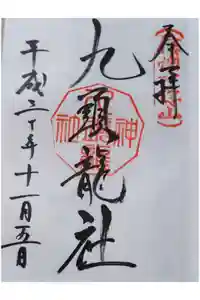 奉拝
九頭龍社
平成三十年十一月五日